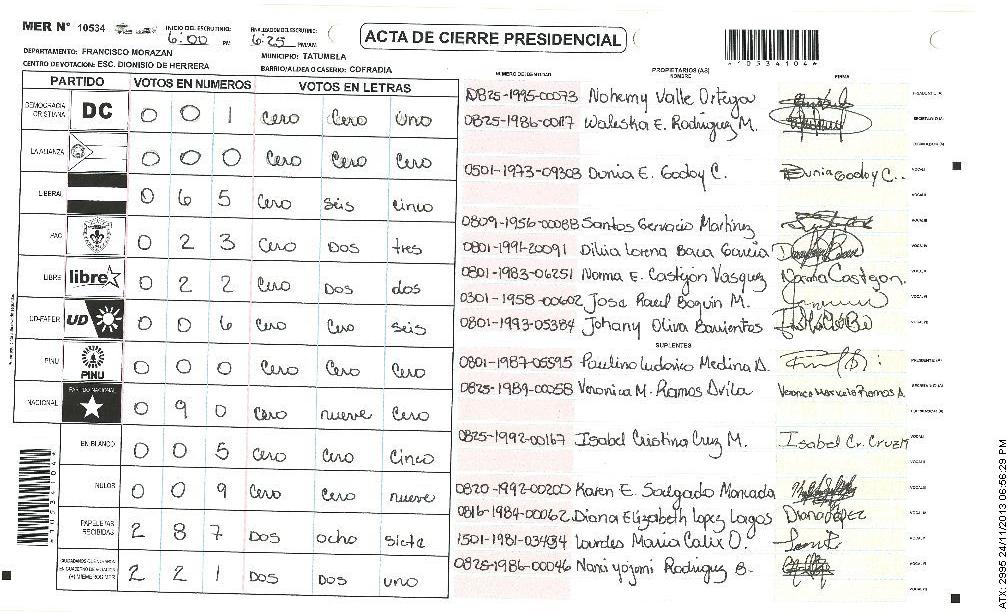 MER N° 10534 INICIO DEL ESCRUTINIO: 6:00 PM FINALIZACION DEL ESCRUTINIO: 6:25 PM/AM
ACTA DE CIERRE PRESIDENCIAL
*10534104*
DEPARTAMENTO: FRANCISCO MORAZAN MUNICIPIO: TATUMBLA
CENTRO DE VOTACION: ESC. DIONISIO DE HERRERA BARRIO/ALDEA O CASERIO: COFRADIA
PARTIDO VOTOS EN NUMEROS VOTOS EN LETRAS
DEMOCRACIA CRISTIANA DC 0 0 1 Cero Cero Uno
LA ALIANZA 0 0 0 Cero Cero Cero
LIBERAL 0 6 5 Cero seis cinco
PAC 0 2 3 Cero Dos tres
LIBRE libre 0 2 2 Cero Dos dos
UD-FAPER UD 0 0 6 Cero Cero seis
PINU PINU 0 0 0 Cero Cero Cero
NACIONAL PARTIDO NACIONAL 0 9 0 Cero nueve Cero
EN BLANCO 0 0 5 Cero Cero Cinco
NULOS 0 0 9 Cero Cero nueve
PAPELETAS RECIBIDAS 2 8 7 Dos ocho siete
2 2 1 Dos Dos uno
NUMERO DE IDENTIDAD PROPIETARIOS (AS) NOMBRE FIRMA
0825-1995-00073 Nohemy Valle Ortega PRESIDENTE (A)
0825-1986-00117 Waleska E. Rodriguez M. SECRETARIO (A)
0501-1973-09303 Dunia E. Godoy C. Dunia Godoy C.
0809-1956-00088 Santos Gervacio Martínez
0801-1991-20091 Dilcia Lorena Baca Garcia
0801-1983-06251 Norma E. Castejón Vasquez Norma Castejon.
0301-1958-00602 Jose Raul Boquin M.
0801-1993-05384 Johany Oliva Barrientos
SUPLENTES
0801-1987-05595 Paulino Ludovico Medina A. PRESIDENTE (A)
0825-1989-00058 Veronica M. Ramos Avila SECRETARIO (A)
0825-1992-00167 Isabel Cristina Cruz M. Isabel Cr. Cruz M
0820-1992-00200 Karen E. Salgado Moncada
0816-1984-00062 Diana Elizabeth Lopez Lagos Diana López
1501-1981-03434 Lourdes Maria Calix O.
0825-1986-00046 Rodriguez B.
ATX: 2995 24/11/2013 06:56:29 PM